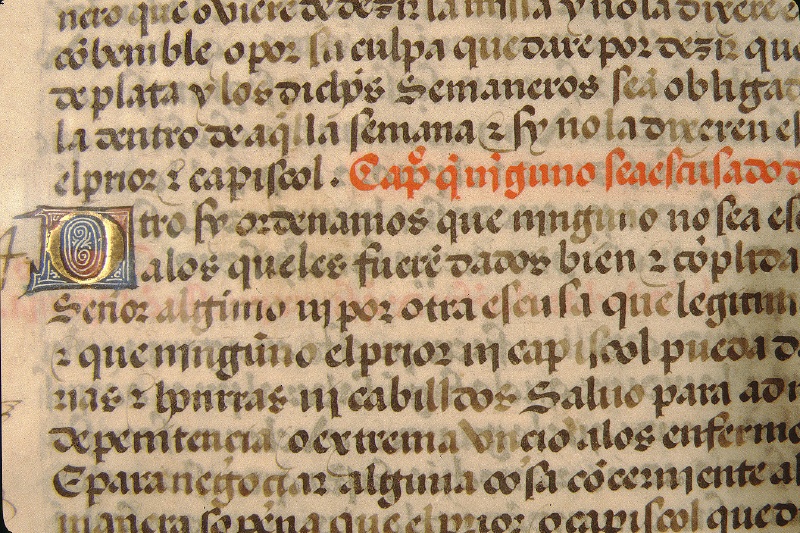 nero que oviere de dezir la missa y no la dixere
cōbenible o por su culpa quedare por dezir que
de plata y los dichos Semaneros seā obligad
la dentro de aq̄lla semana ⁊ sy no la dixeren es
el prior ⁊ capiscol . Cap̊ q̄ nīguno sea escusado d
Otro sy ordenamos que ninguno no sea es
a los que les fuerē dados bien ⁊ cōplida
Señor alguno ni por otra escusa que legitim
⁊ que ninguno el prior ni capiscol pueda d
rias ⁊ honrras ni cabilldos Salvo para ad
de penitencia o extrema vncio a los enferme
E para negoçiar alguna cosa cōcerniente al
manera so pena que el prior o capiscol qued